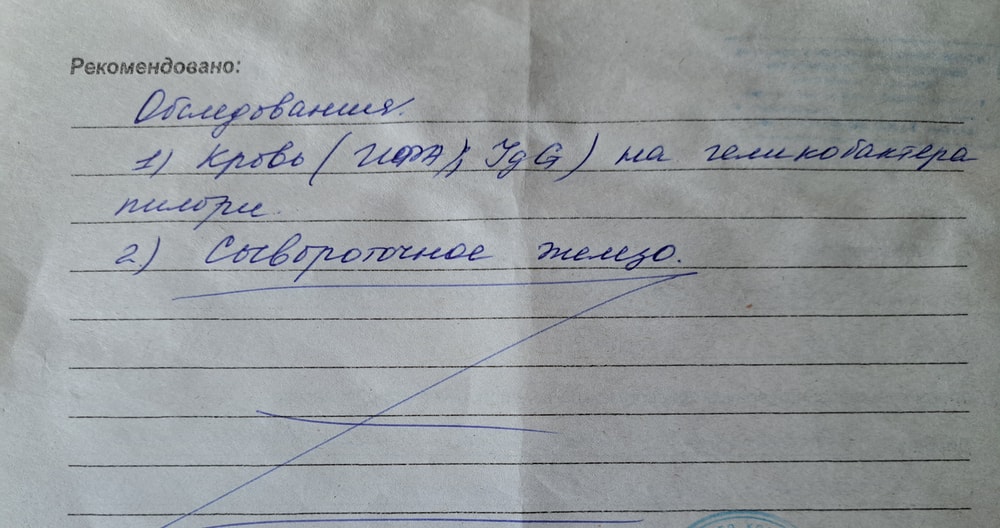 Рекомендовано:
Обследования.
1) Кровь (ИФА); IgG) на геликобактера
пилори.
2) Сывороточное железо.